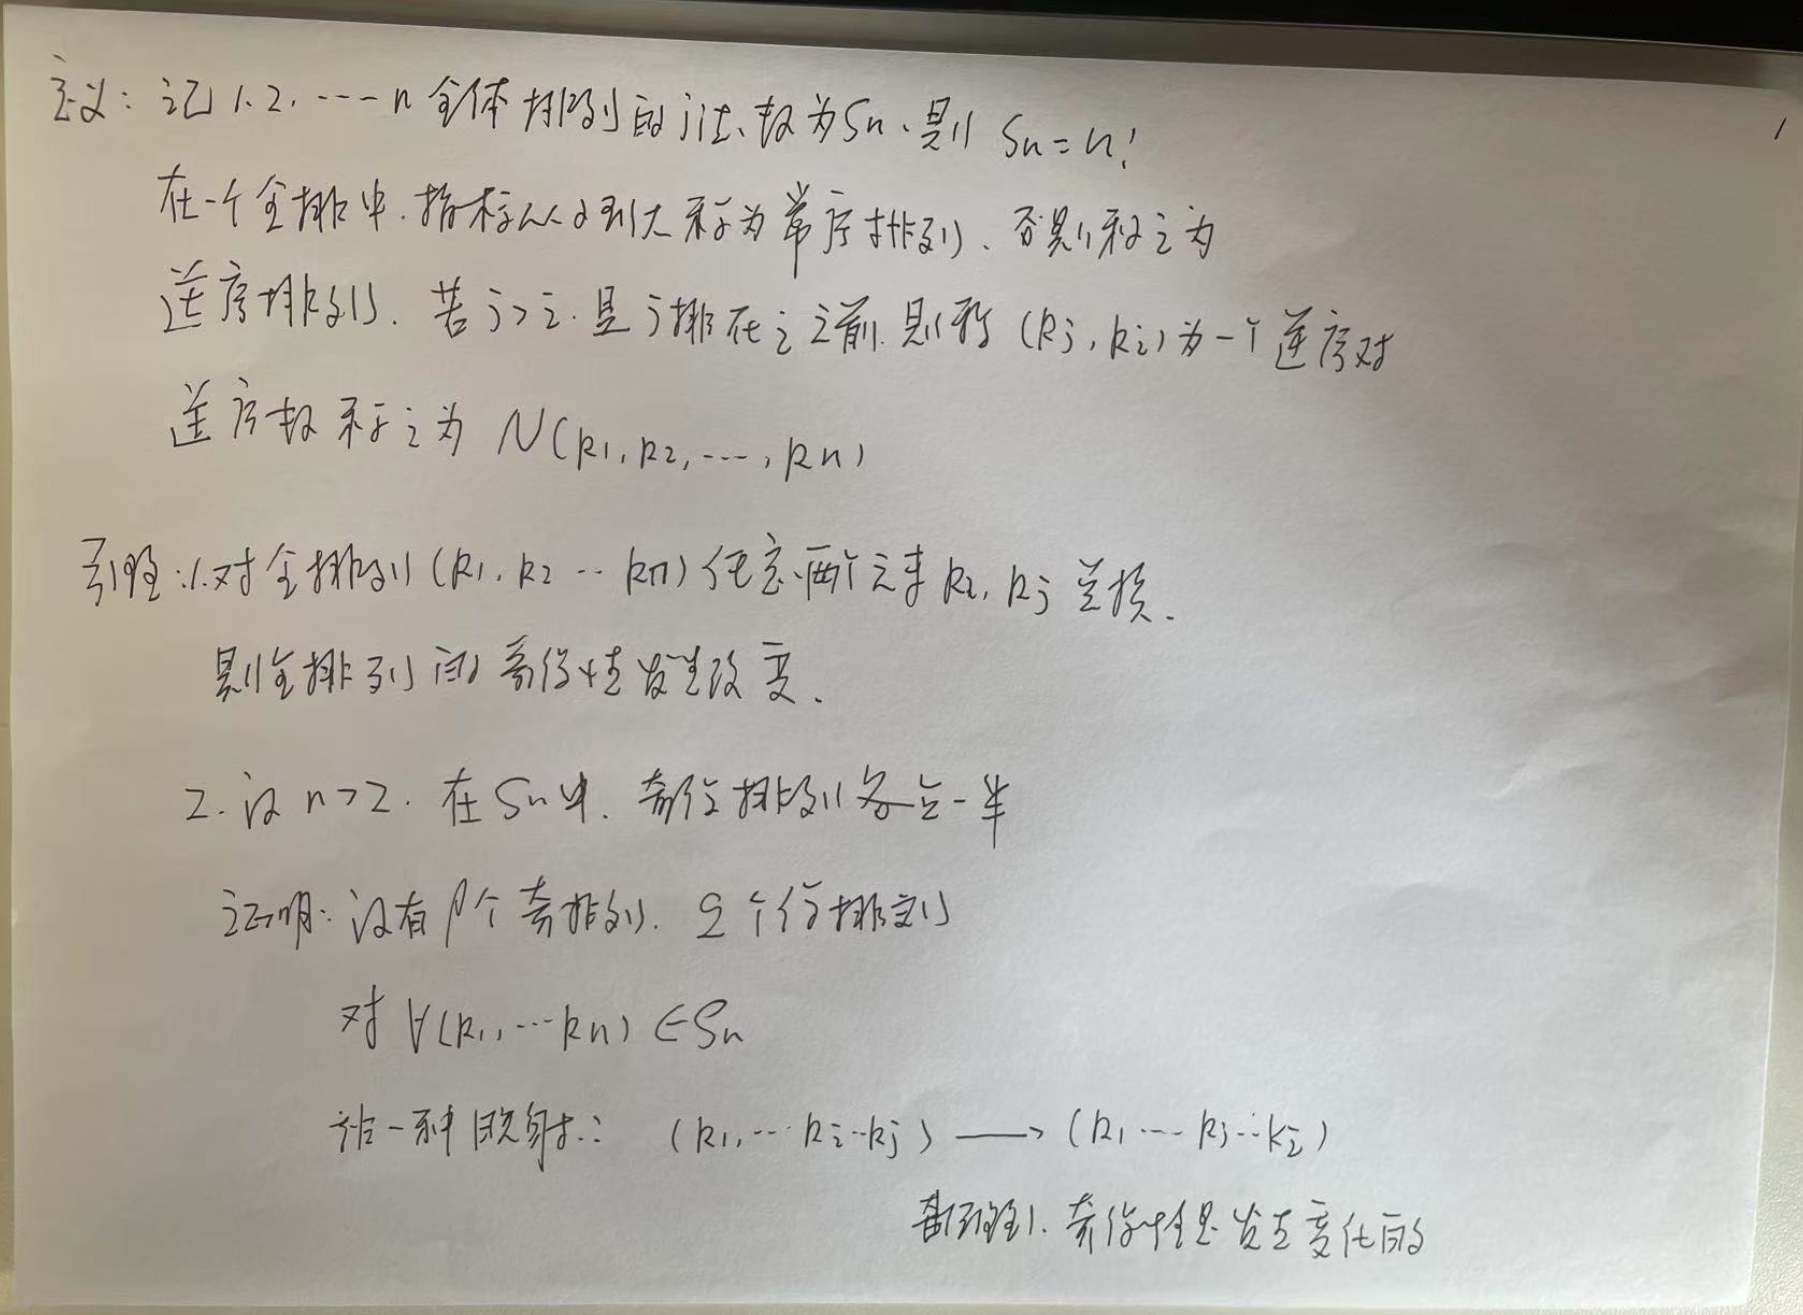 定义: 记 1. 2. ---- n 全体排列的方法数为Sn、则 Sn=n!
1
在一个全排中. 指标从小到大称为常序排列、否则称之为
逆序排列. 若 j>i. 且 j 排在 i 之前. 则称 (kj, ki) 为一个逆序对
逆序数称之为 N(k1, k2, ---, kn)
引理:1.对全排列 (k1, k2 ·· kn) 任意两个元素 ki, kj 兑换.
则全排列的奇偶性发生改变.
2. 设 n>2. 在 Sn 中. 奇偶排列各占一半
证明: 设有 p个奇排列. q个偶排列
对 ∀(k1, ··· kn) ∈Sn
一种映射: (k1, ··· ki··kj) → (k1 ··· kj··ki)
由引理1. 奇偶性是发生变化的